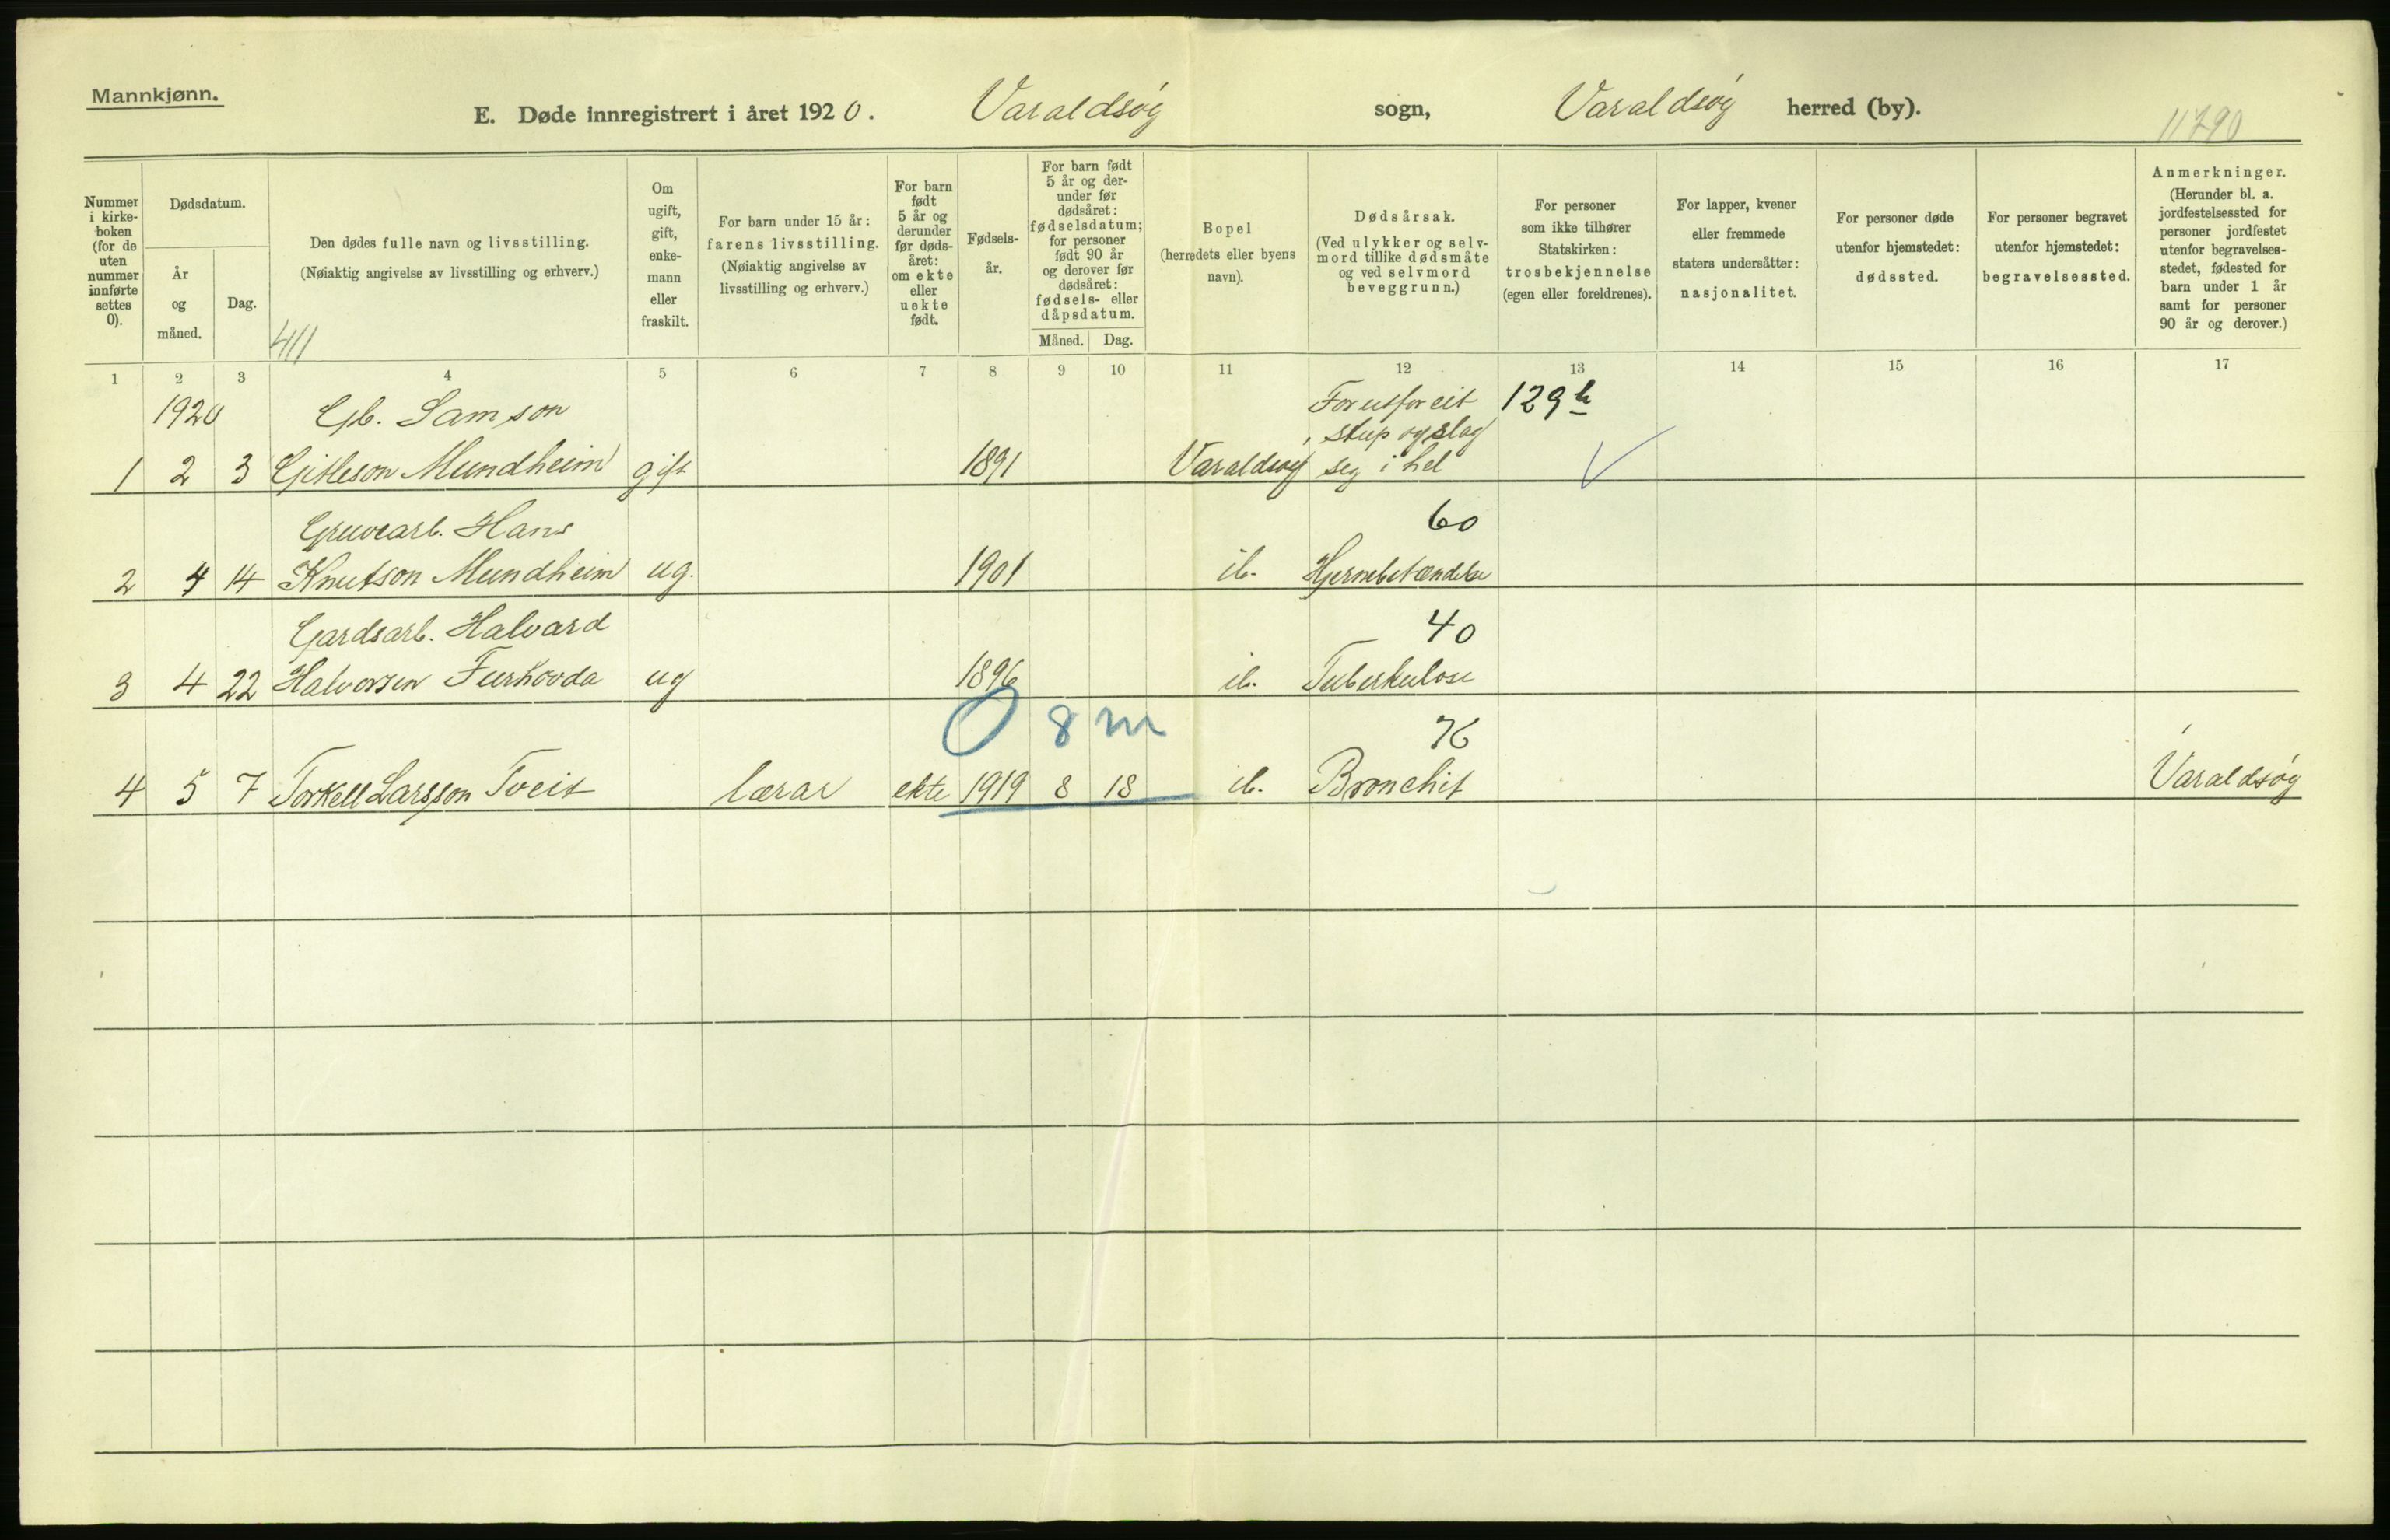 Mannkjønn.
E. Døde innregistrert i året 1920. Varaldsøy sogn, Varaldsøy herred (by).
11790
Nummer i kirke-
boken
(for de
uten
nummer
innførte
settes
0).
Dødsdatum.
År
og
måned.
Dag.
Den dødes fulle navn og livsstilling.
(Nøiaktig angivelse av livsstilling og erhverv.)
411
Om
ugift,
gift,
enke-
mann
eller
fraskilt.
For barn under 15 år:
farens livsstilling.
(Nøiaktig angivelse av
livsstilling og erhverv.)
For barn
født
5 år og
derunder
før døds-
året:
om ekte
eller
uekte
født.
Fødsels-
år.
For barn født
5 år og der-
under før
dødsåret:
fødselsdatum;
for personer
født 90 år
og derover før
dødsåret:
fødsels- eller
dåpsdatum.
Måned. Dag.
Bopel
(herredets eller byens
navn).
Dødsårsak.
(Ved ulykker og selv-
mord tillike dødsmåte
og ved selvmord
beveggrunn.)
For personer
som ikke tilhører
Statskirken:
trosbekjennelse
(egen eller foreldrenes).
For lapper, kvener
eller fremmede
staters undersåtter:
nasjonalitet.
For personer døde
utenfor hjemstedet:
dødssted.
For personer begravet
utenfor hjemstedet:
begravelsessted.
Anmerkninger.
(Herunder bl. a.
jordfestelsessted for
personer jordfestet
utenfor begravelses-
stedet, fødested for
barn under 1 år
samt for personer
90 år og derover.)
1 2 3 4 5 6 7 8 9 10 11 12 13 14 15 16 17
1920 Gb. Samson
stup og slag
129 h
1 2 3 Gitleson Mundheim gift 1891 Varaldsøy seg i hel
Gruvearb. Hans 60
2 4 14 Knutson Mundheim ug. 1901 ib. Hjernebetændelse
Gardsarb. Halvard 40
3 4 22 Halvorsen Furhovda ug 1896 ib. Tuberkulose
0 8 m 76
4 5 7 Torkell Larsson Tveit lærar ekte 1919 8 18 ib. Bronchit Varaldsøy